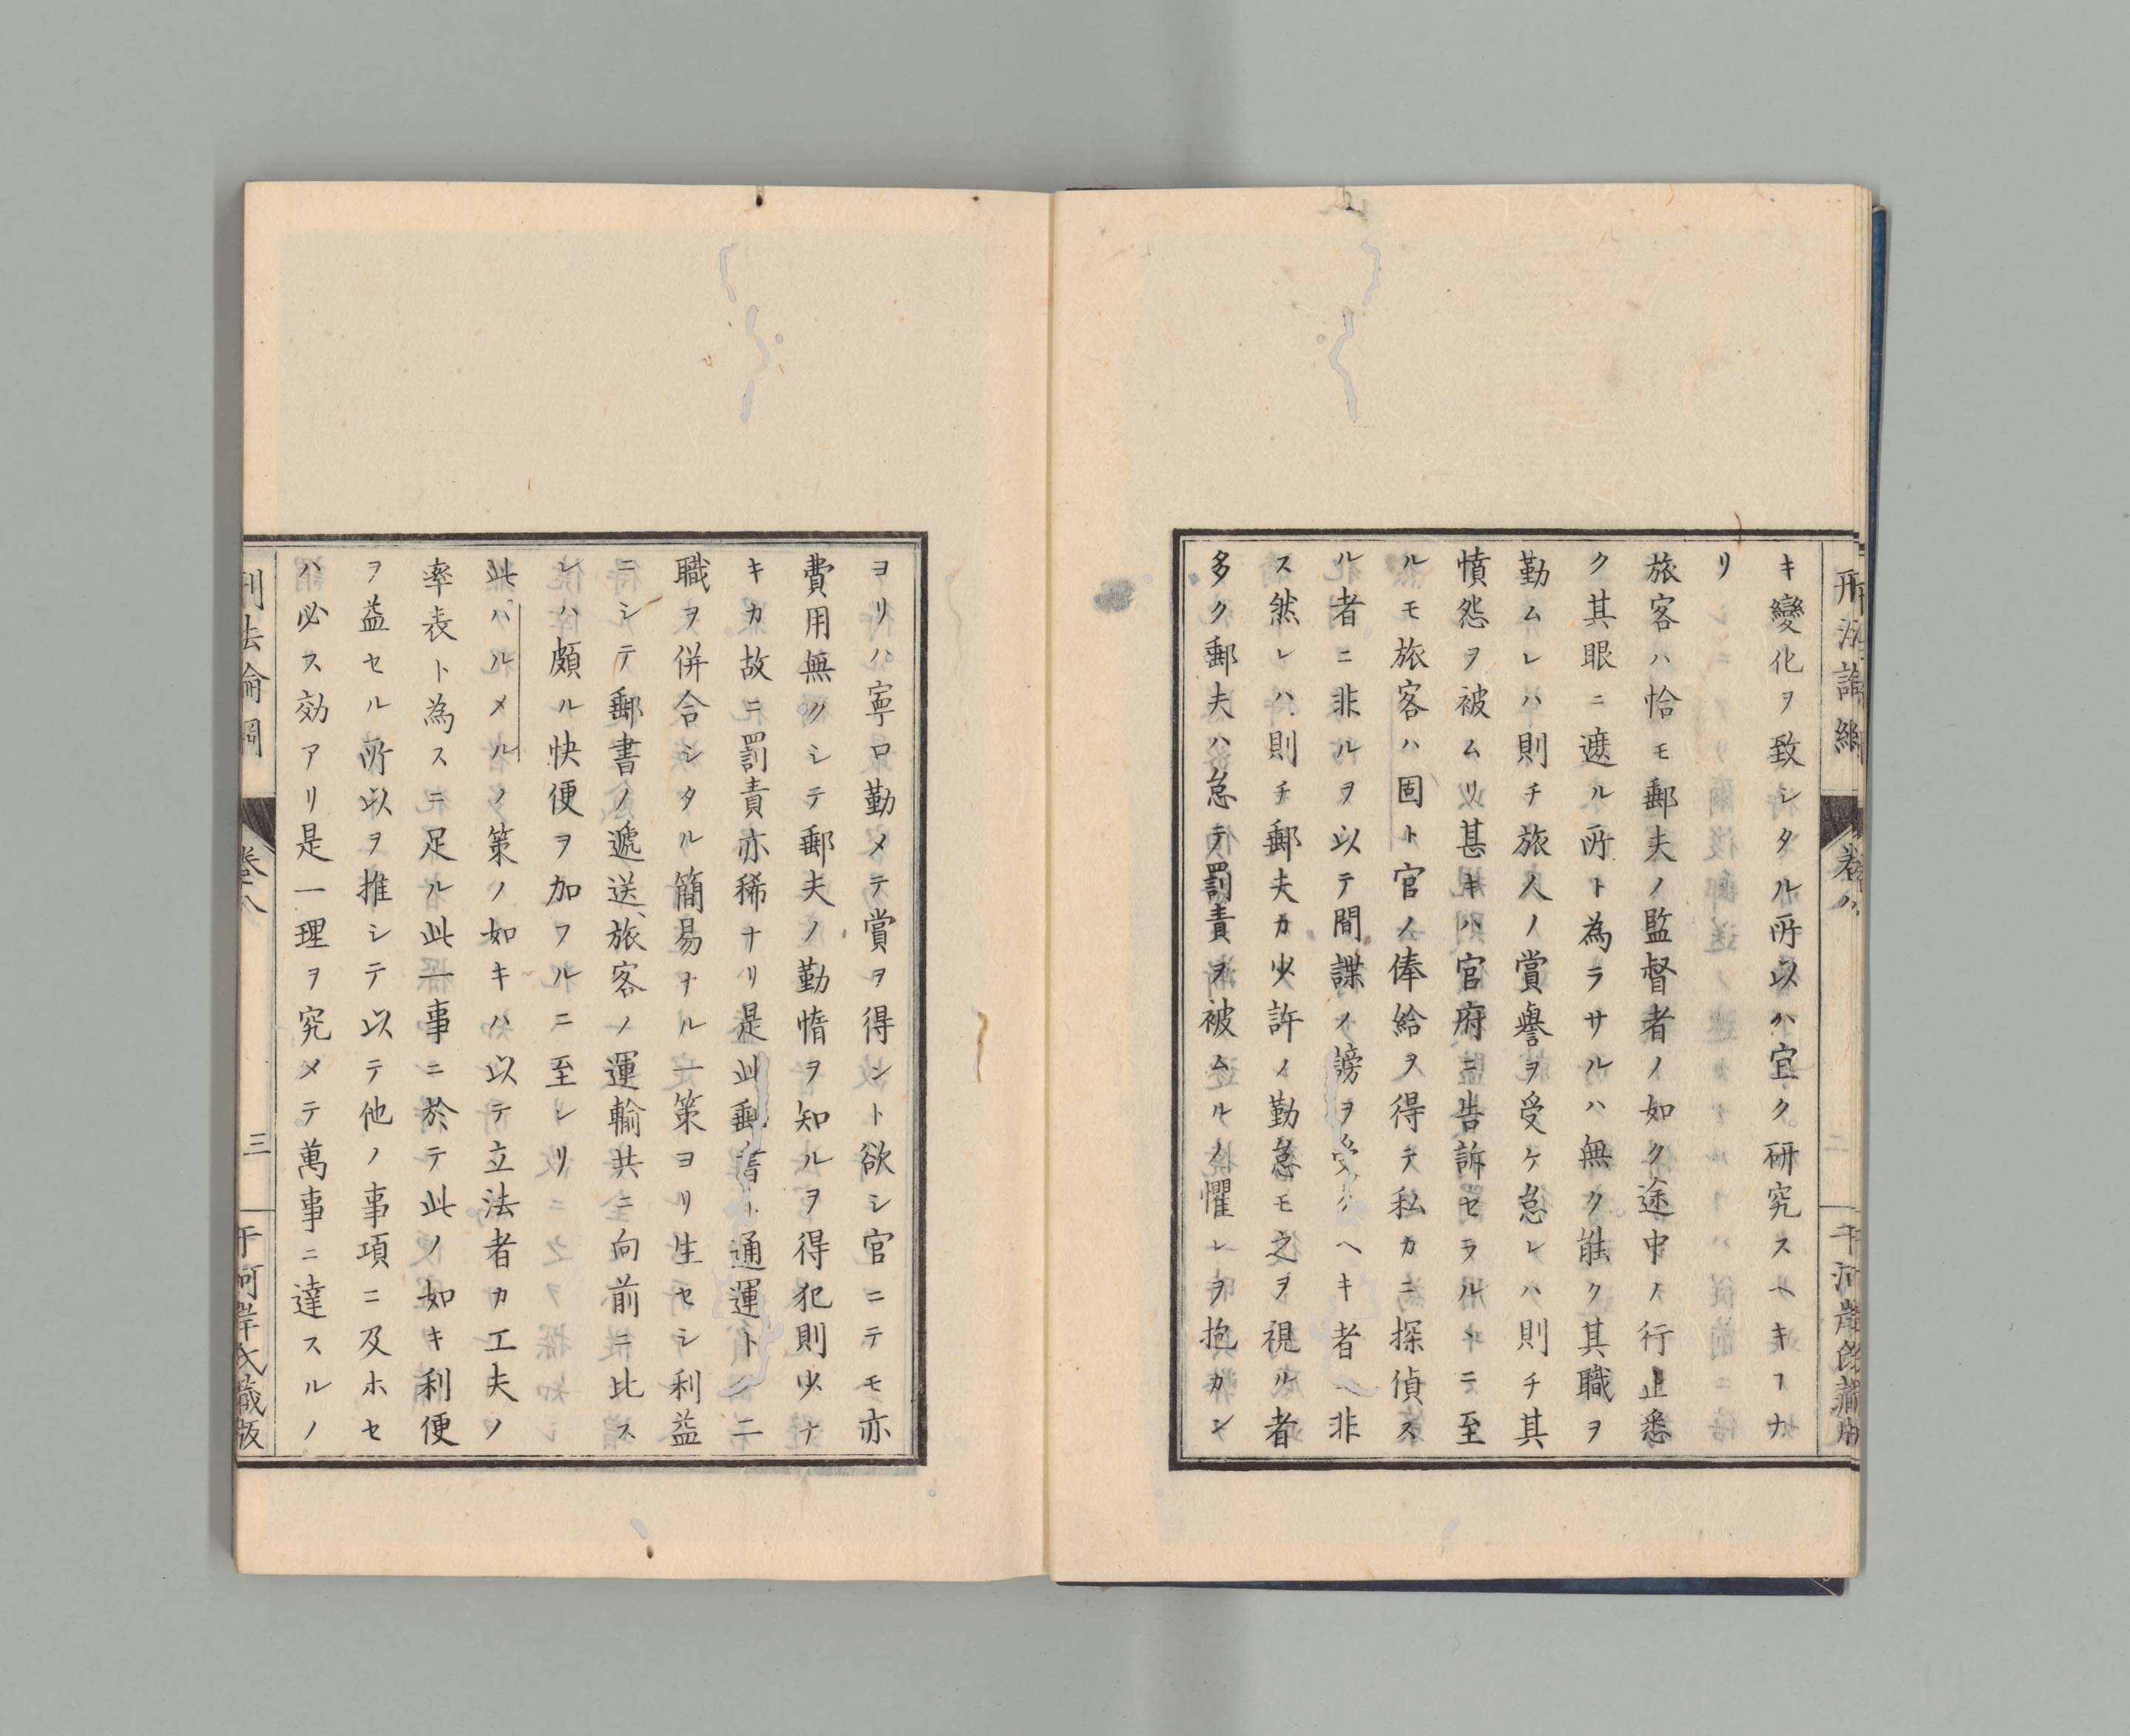 刑法論綱
卷八
二
キ變化ヲ致シタル所以ハ宜ク研究スヘキヿナ
リ
旅客ハ恰モ郵夫ノ監督者ノ如ク途中ノ行止悉
ク其眼ニ遮ル所ト為ラサルハ無ク能ク其職ヲ
勤ムレハ則チ旅人ノ賞譽ヲ受ケ怠レハ則チ其
憤怨ヲ被ムリ甚キハ官府ニ告訴セラルヽニ至
ルモ旅客ハ固ト官ノ俸給ヲ得テ私カニ探偵ス
ル者ニ非ルヲ以テ間諜ノ謗ヲ受クヘキ者ニ非
ス然レハ則チ郵夫カ少許ノ勤怠モ之ヲ視ル者
多ク郵夫ハ怠テ罰責ヲ被ムルノ懼レヲ抱カン
ヨリハ寧ロ勤メテ賞ヲ得ント欲シ官ニテモ亦
費用無クシテ郵夫ノ勤惰ヲ知ルヲ得犯則少ナ
キカ故ニ罰責亦稀ナリ是此郵書ト通運トノ二
職ヲ併合シタル簡易ナル一策ヨリ生セシ利益
ニシテ郵書ノ遞送旅客ノ運輸共ニ向前ニ比ス
レハ頗ル快便ヲ加フルニ至レリ
此ハルメルノ策ノ如キハ以テ立法者カ工夫ノ
率表ト為スニ足ル此一事ニ於テ此ノ如キ利便
ヲ益セル所以ヲ推シテ以テ他ノ事項ニ及ホセ
ハ必ス効アリ是一理ヲ究メテ萬事ニ達スルノ
刑法論綱
卷八
三
干河岸氏藏版